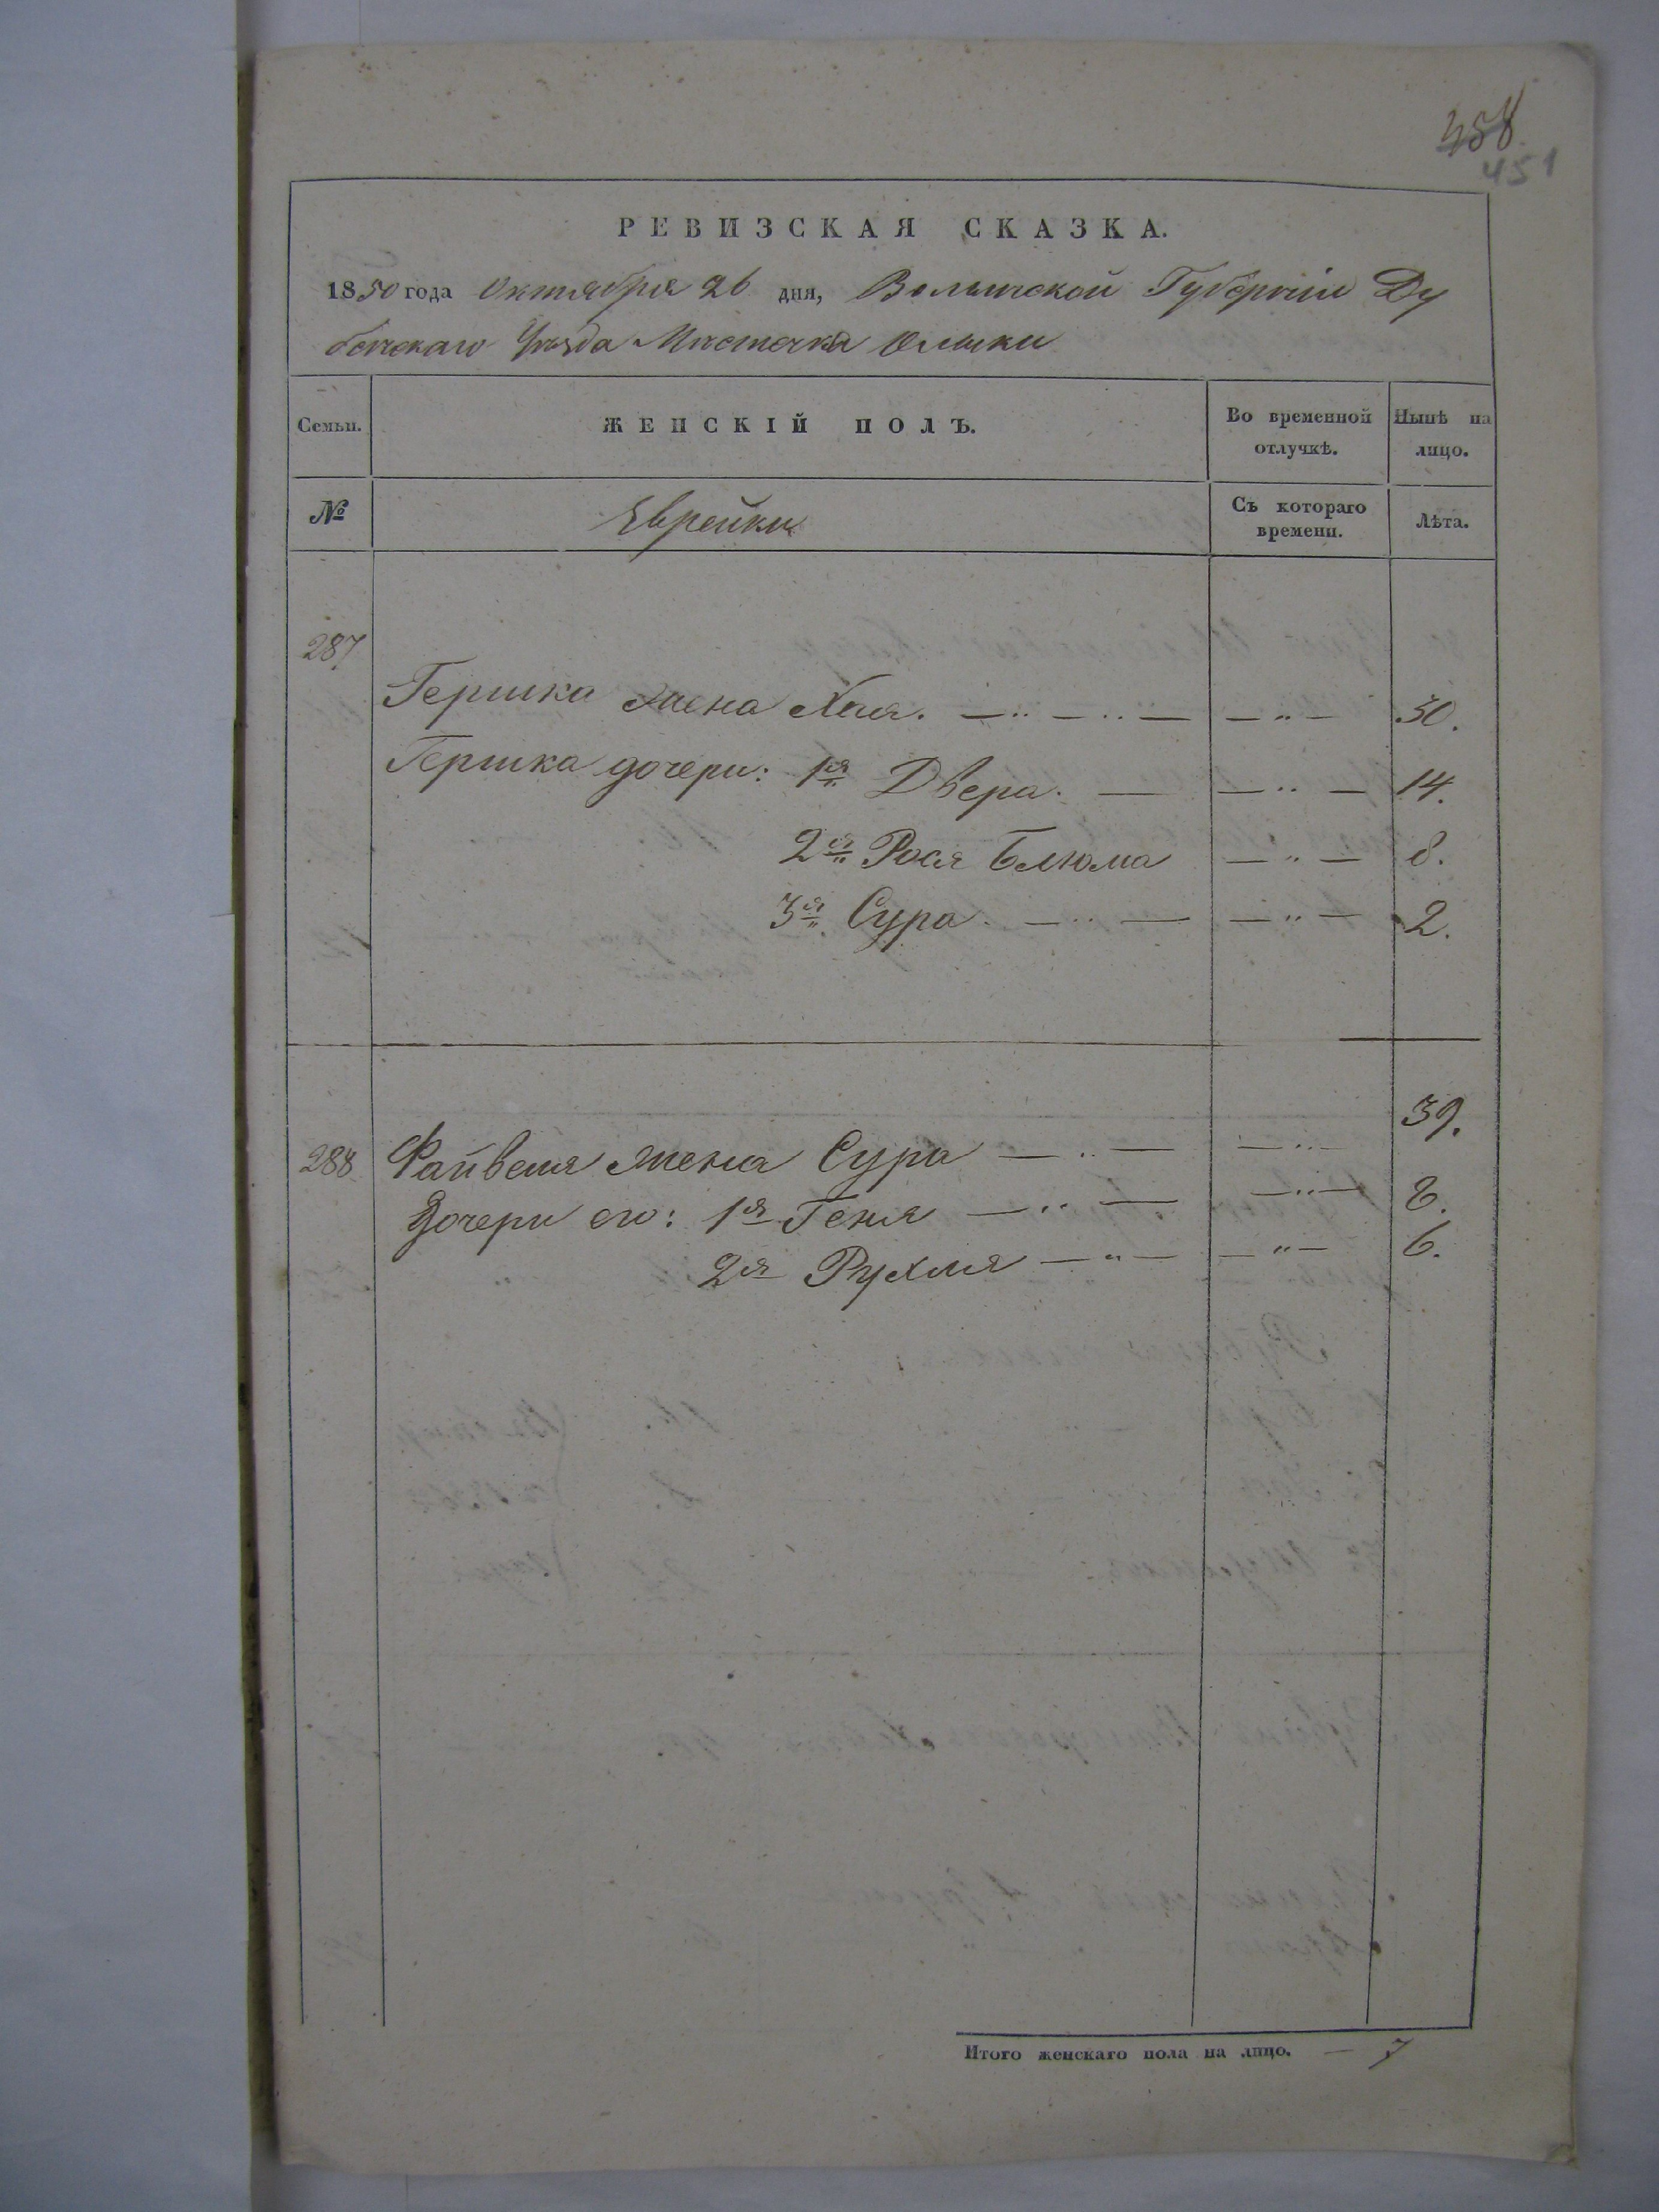 458
451
РЕВИЗСКАЯ СКАЗКА.
1850 года Октября 26 дня, Волынской Губерніи Ду
бенскаго Уѣзда Мѣстечка Олыки
Семьи. ЖЕНСКІЙ ПОЛЪ. Во временной отлучкѣ. Нынѣ на лицо.
№ Еврейки Съ котораго времени. Лѣта.
287
Гершка жена Хая. — „ — „ — — „ — 50.
Гершка дочери: 1я Двера. — — „ — 14.
2я Рося Блюма — „ — 8.
3я Сура. — „ — — „ — 2.
39.
288 Файвеля жена Сура — „ — — „ —
Дочери его: 1я Геня — „ — — „ — 8.
2я Рухля — „ — — „ — 6.
Итого женскаго пола на лицо. — 7